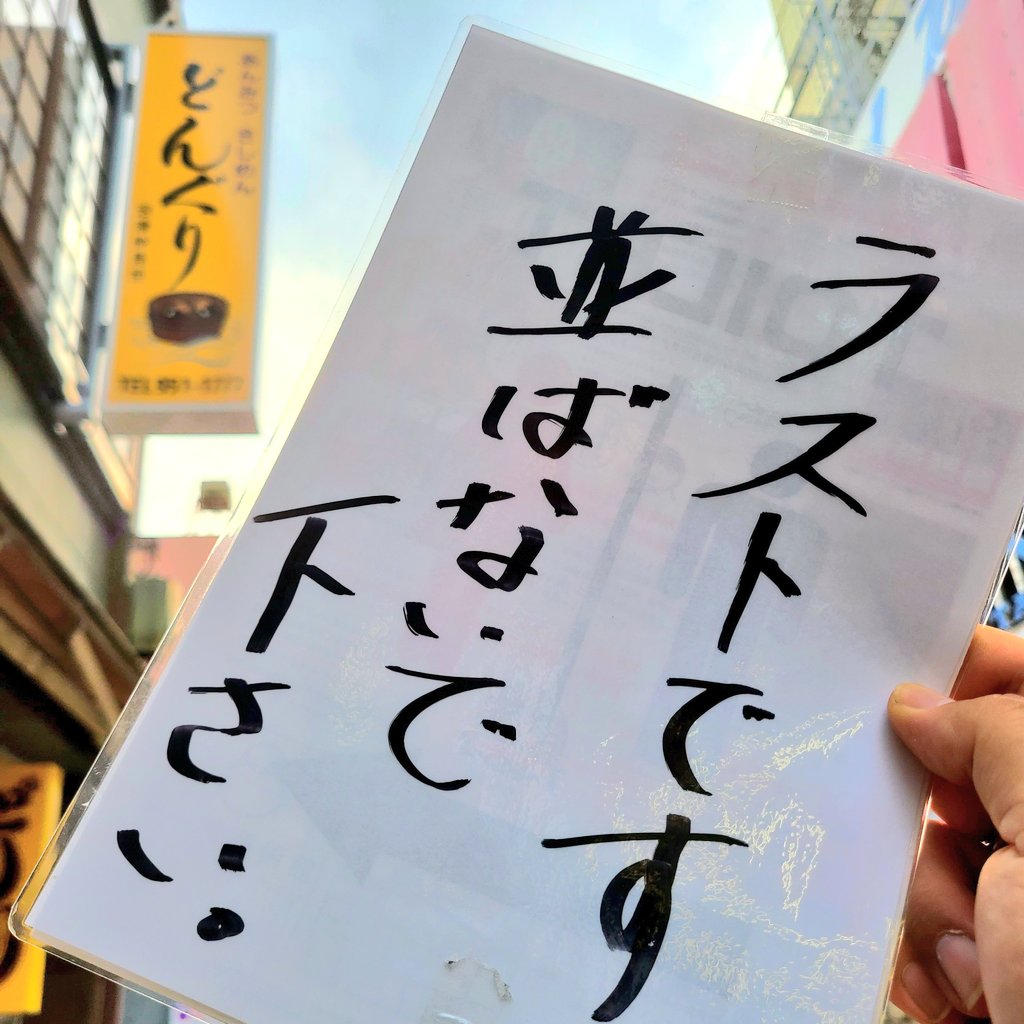 ラストです
並ばないで
下さい。
あんみつ きしめん
どんぐり
TEL 951-1777